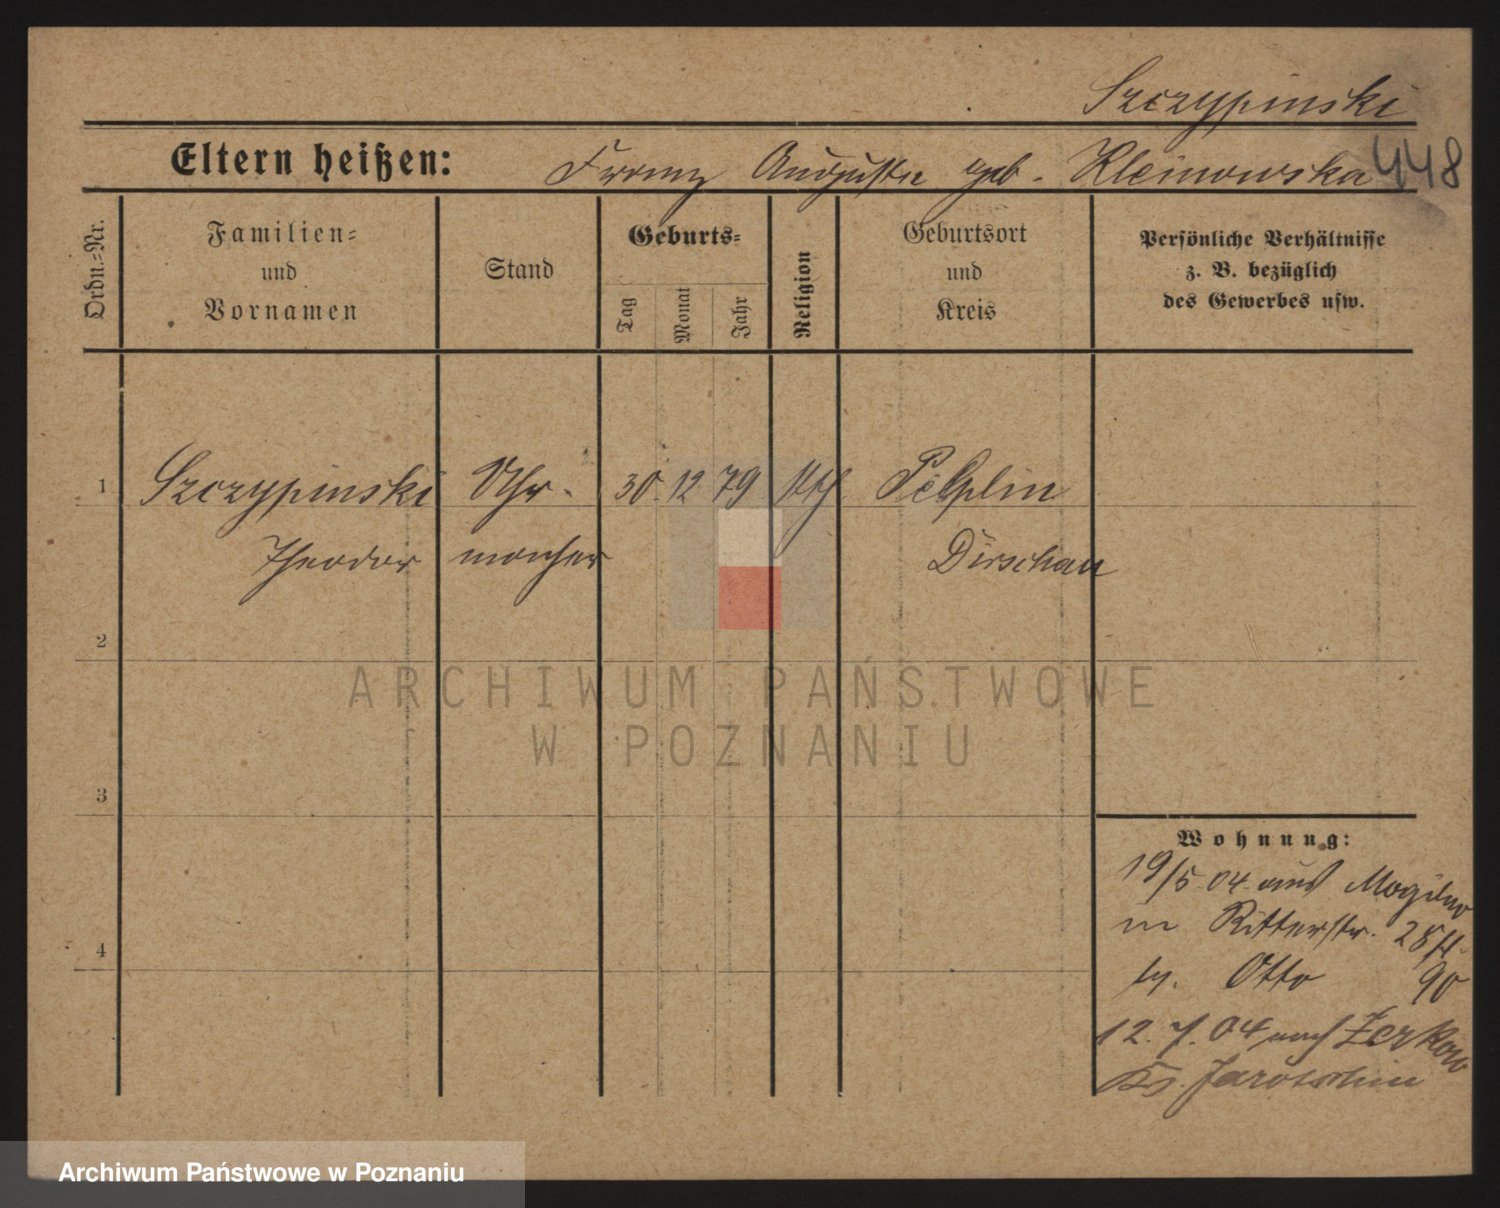 Szczypinski
Eltern heißen: Franz Auguste geb. Kleinowska 448
Ordn.-Nr.
Familien-
und
Vornamen
Stand
Geburts-
Tag
Monat
Jahr
Religion
Geburtsort
und
Kreis
Persönliche Verhältnisse
z. B. bezüglich
des Gewerbes usw.
1 Szczypinski Uhr- 30. 12 79 kth Pelplin
Theodor macher Dirschau
2
ARCHIWUM PAŃSTWOWE
W POZNANIU
3
Wohnung:
19/5 04 aus Mogilno
in Ritterstr. 28
4
b. Otto 90
12. 7. 04 nach Zerkow
Ks. Jarotschin
Archiwum Państwowe w Poznaniu